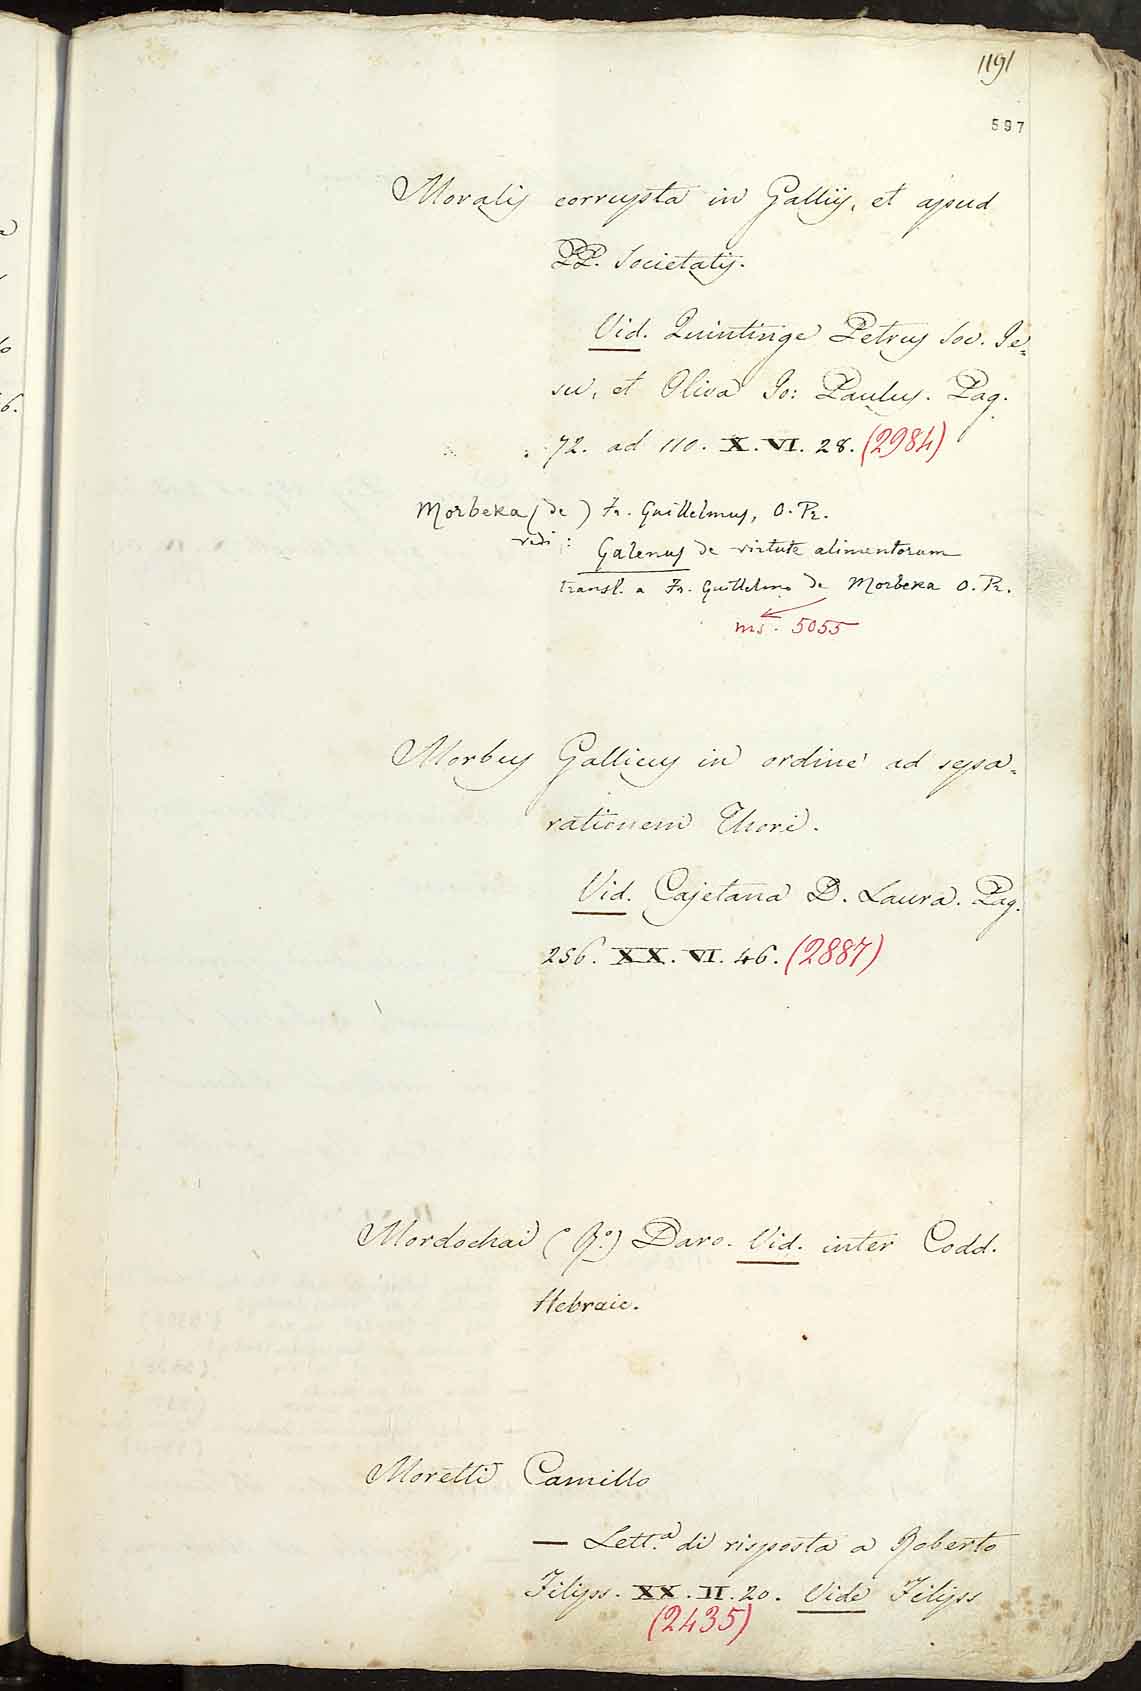 1191
597
Moralis corrupta in Galliis, et apud
PP. Societatis.
Vid. Quintinge Petrus Soc. Je=
su, et Oliva Jo: Paulus. Pag.
72. ad 110. X. VI. 28. (2984)
Morbeka (de) Fr. Guillelmus, O. Pr.
vedi: Galenus de virtute alimentorum
transl. a Fr. Guillelmo de Morbeka O. Pr.
ms. 5055
Morbus Gallicus in ordine ad sepa=
rationem Thori.
Vid. Cajetana D. Laura. Pag.
256. XX. VI. 46. (2887)
Mordochai (R.º) Davo. Vid. inter Codd.
Hebraic.
Moretti Camillo
— Lett.ª di risposta a Roberto
Filips. XX. II. 20. Vide Filips
(2435)